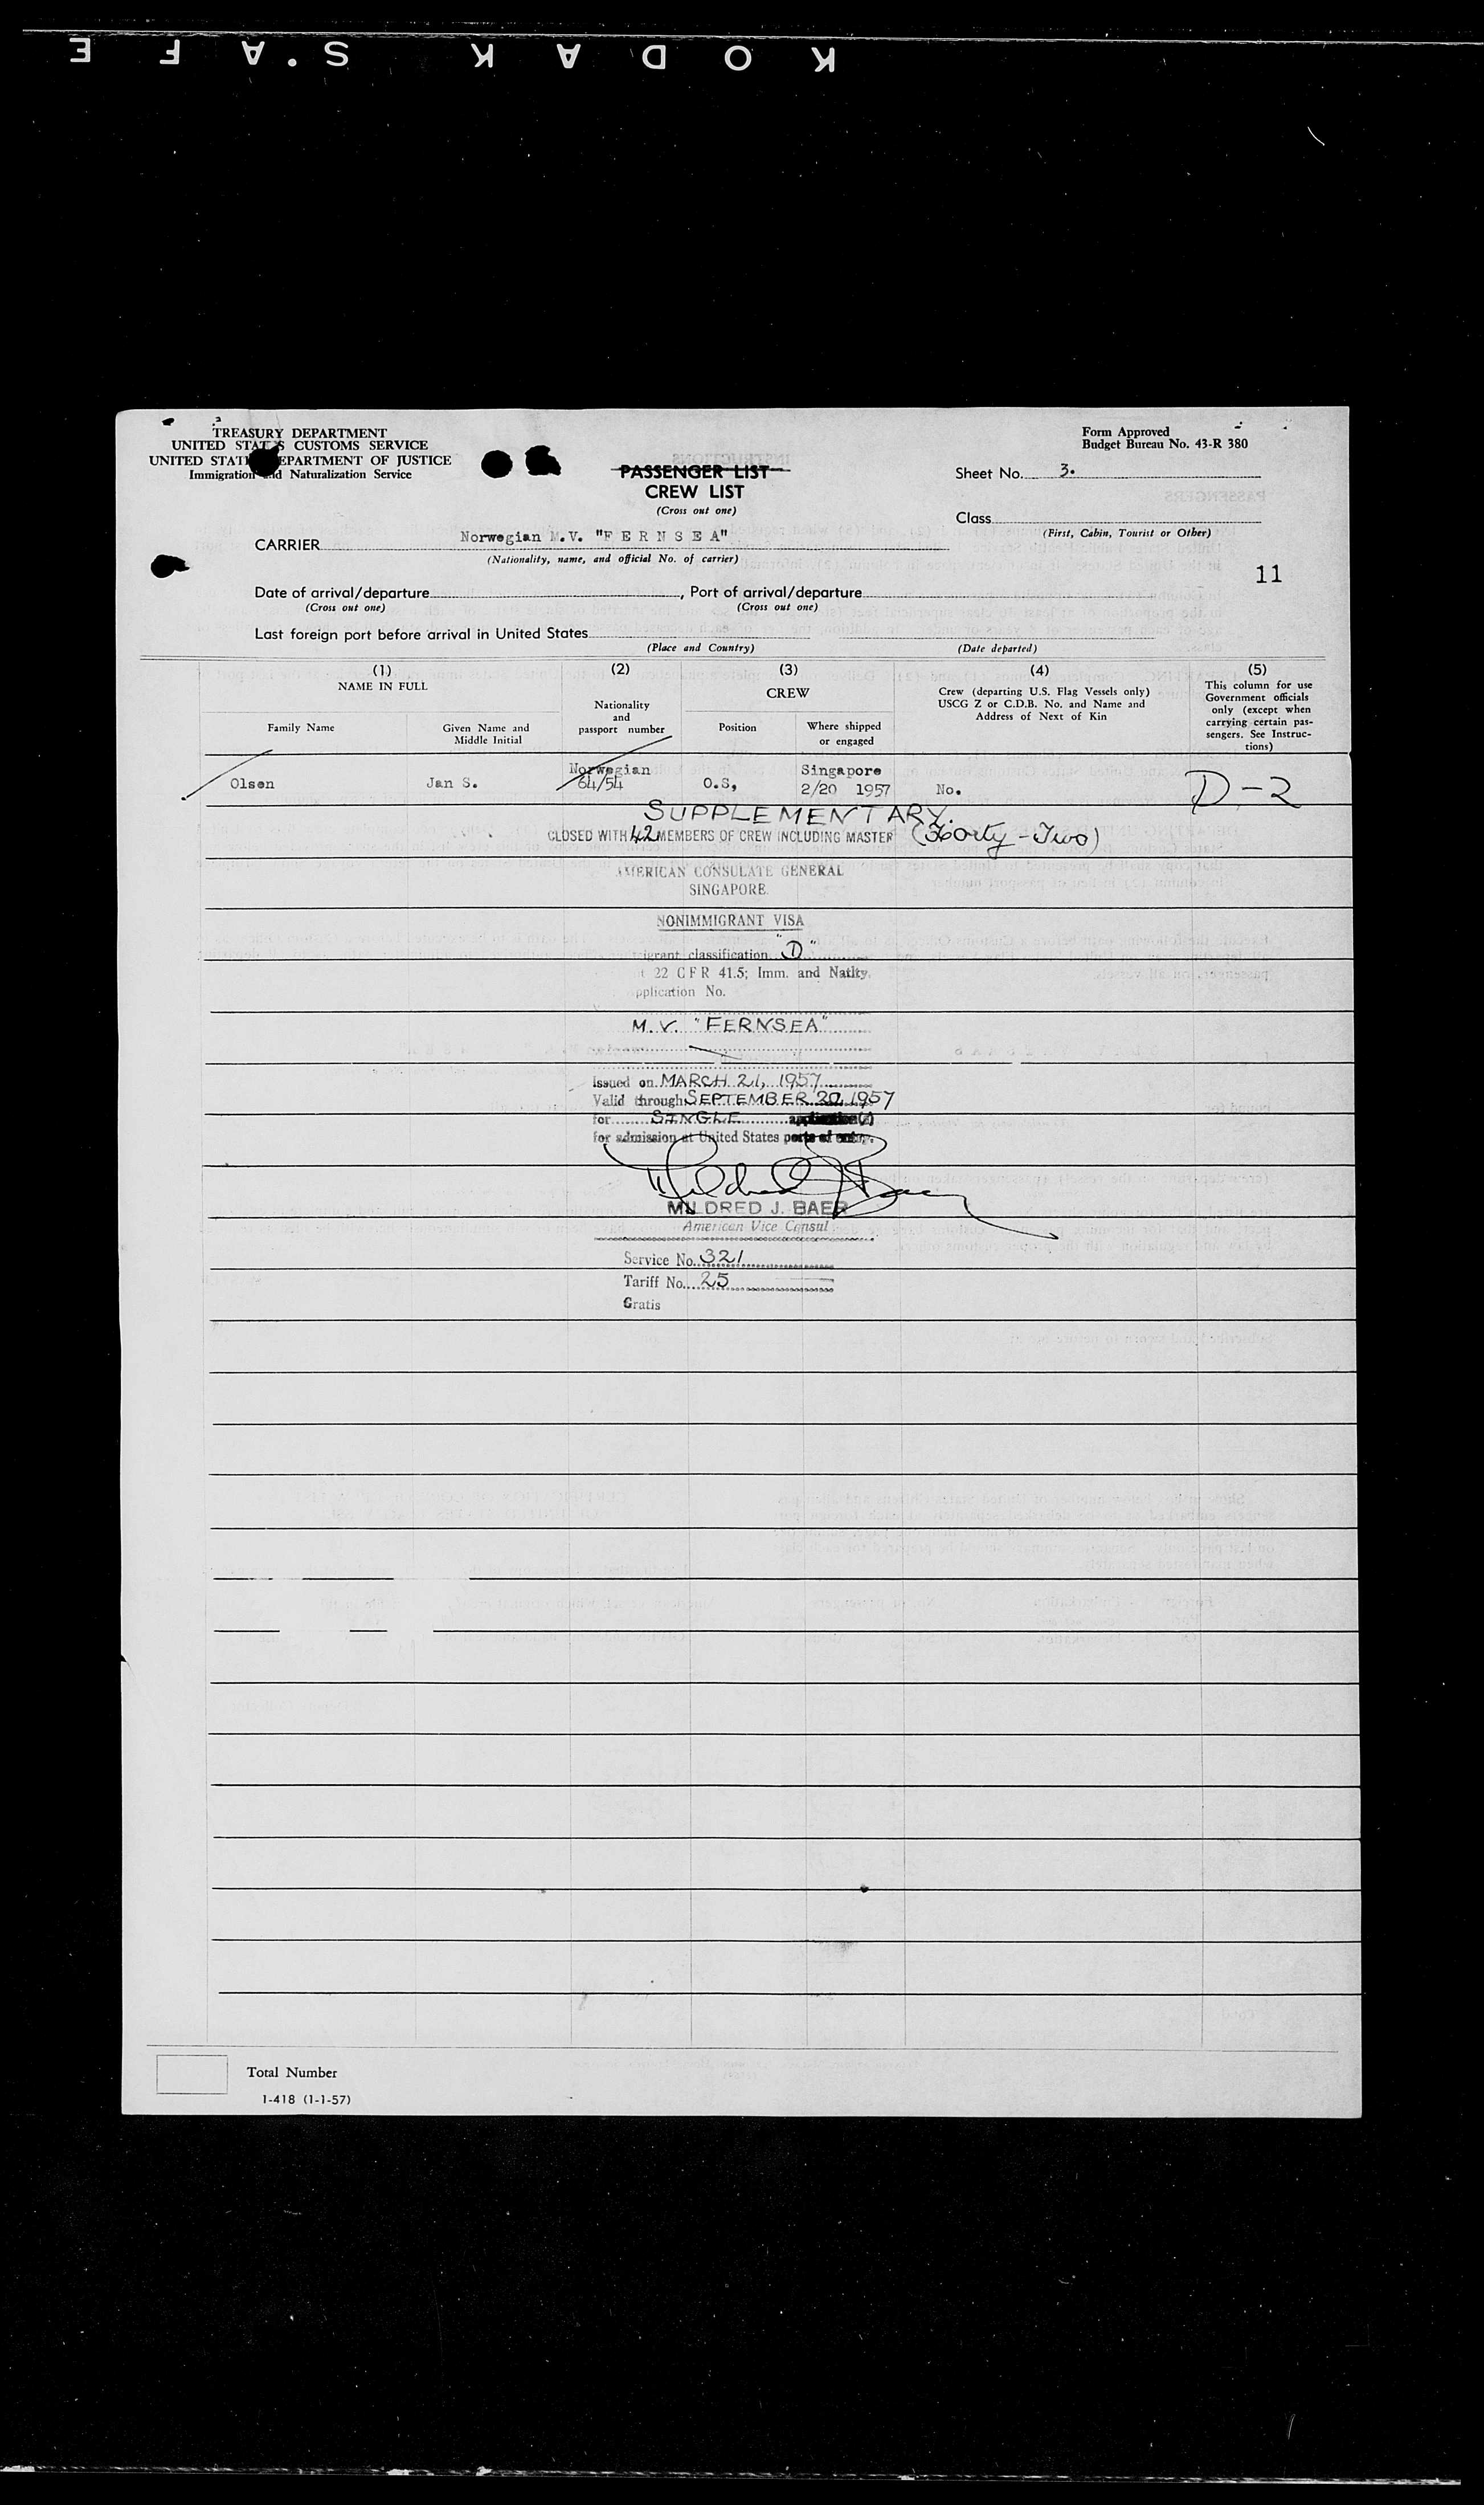 KODAK SAFE
TREASURY DEPARTMENT
UNITED STATES CUSTOMS SERVICE
UNITED STATES DEPARTMENT OF JUSTICE
Immigration and Naturalization Service
Form Approved
Budget Bureau No. 43-R 380
PASSENGER LIST
CREW LIST
(Cross out one)
Sheet No. 3.
Class
(First, Cabin, Tourist or Other)
CARRIER Norwegian M.V. "F E R N S E A"
(Nationality, name, and official No. of carrier)
11
Date of arrival/departure , Port of arrival/departure
(Cross out one) (Cross out one)
Last foreign port before arrival in United States
(Place and Country) (Date departed)
(1) (2) (3) (4) (5)
NAME IN FULL
Family Name
Given Name and
Middle Initial
Nationality
and
passport number
CREW
Position
Where shipped
or engaged
Crew (departing U.S. Flag Vessels only)
USCG Z or C.D.B. No. and Name and
Address of Next of Kin
This column for use
Government officials
only (except when
carrying certain pas-
sengers. See Instruc-
tions)
Norwegian Singapore
Olsen Jan S. 64/54 O.S, 2/20 1957 No. D-2
SUPPLEMENTARY.
CLOSED WITH 42 MEMBERS OF CREW INCLUDING MASTER (Forty-Two)
AMERICAN CONSULATE GENERAL
SINGAPORE.
NONIMMIGRANT VISA
igrant classification "D"
22 CFR 41.5; Imm. and Natlty.
pplication No.
M.V. "FERNSEA"
Issued on MARCH 21, 1957
Valid through SEPTEMBER 20, 1957
for SINGLE application(s)
for admission at United States ports of entry.
Mildred J Baer
MILDRED J. BAER
American Vice Consul
Service No. 321
Tariff No. 25
Gratis
Total Number
I-418 (1-1-57)